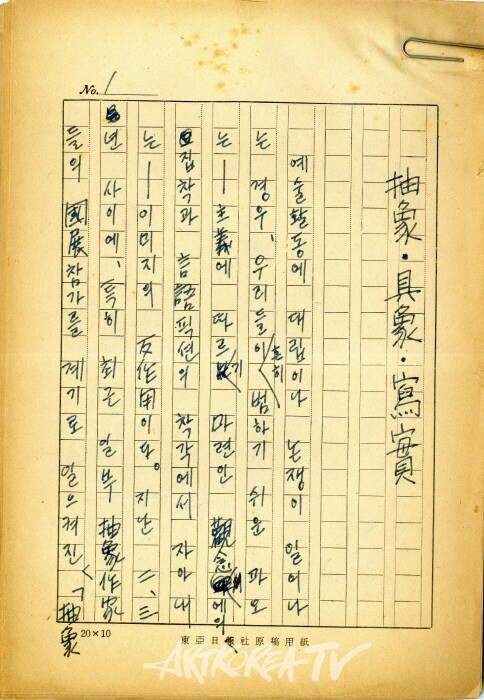 No. 1
抽象·具象·寫實
예술활동에 대립이나 논쟁이 일어나
는 경우, 우리들이 흔히 범하기 쉬운 과오
는 — 主義에 따르기 마련인 觀念에의
집착과 言語픽션의 착각에서 자아내
는 — 이미지의 反作用이다. 지난 二、三
년 사이에, 특히 최근 일부 抽象作家
들의 國展참가를 계기로 일으켜진 「抽象
20×10
東亞日報社原稿用紙
ARTKOREA TV